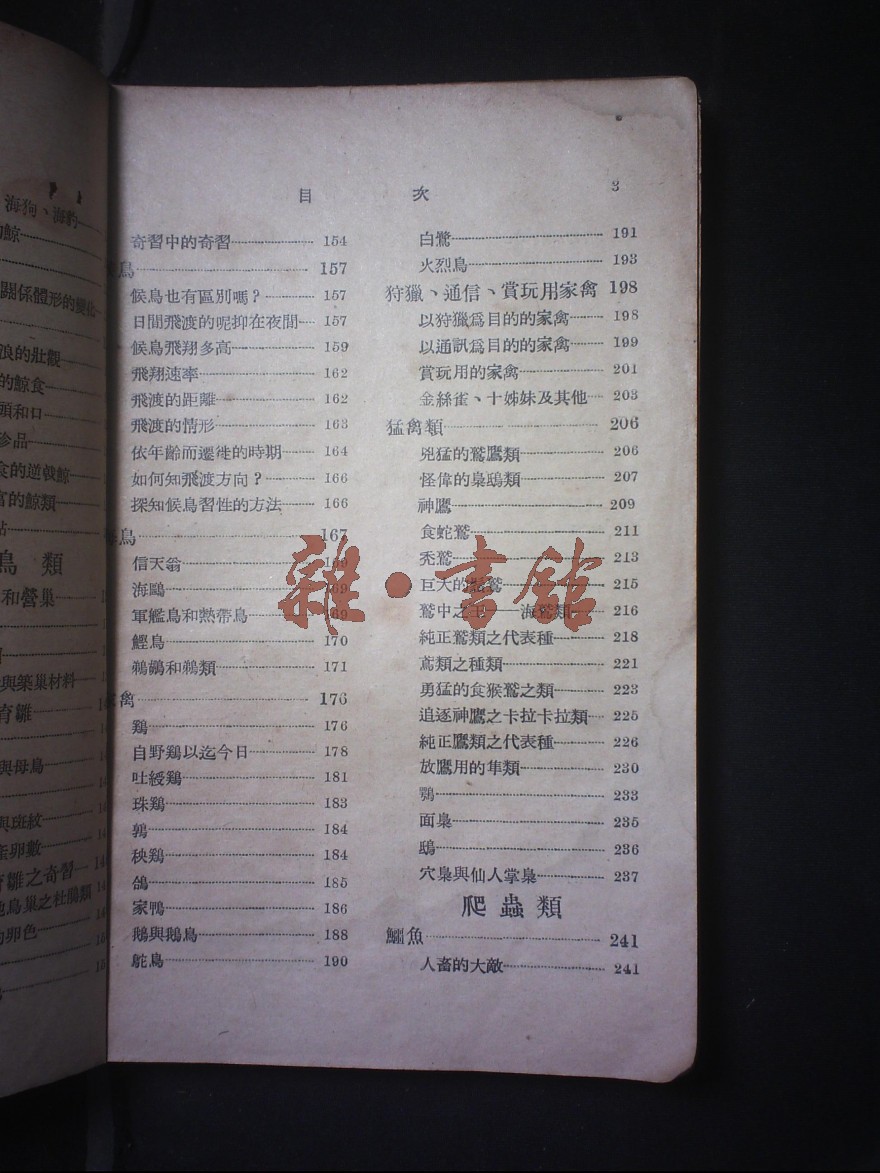 海狗、海豹
鯨
關係體形的變化
浪的壯觀
的鯨食
頭和口
珍品
食的逆戟鯨
的鯨類
點
鳥類
和營巢
與築巢材料
育雛
與母鳥
與斑紋
產卵數
育雛之奇習
鳥巢之杜鵑類
的卵色
目 次 3
奇習中的奇習 154
鳥 157
候鳥也有區別嗎? 157
日間飛渡的呢抑在夜間 157
候鳥飛翔多高 159
飛翔速率 162
飛渡的距離 162
飛渡的情形 163
依年齡而遷徙的時期 164
如何知飛渡方向? 166
探知候鳥習性的方法 166
鳥 167
信天翁 169
海鷗 169
軍艦鳥和熱帶鳥 169
鰹鳥 170
鵜鶘和鵜類 171
禽 176
鶏 176
自野鶏以迄今日 178
吐綬鶏 181
珠鶏 183
鶉 184
秧鶏 184
鴿 185
家鴨 186
鵝與鵝鳥 188
鴕鳥 190
白鷺 191
火烈鳥 193
狩獵、通信、賞玩用家禽 198
以狩獵爲目的的家禽 198
以通訊爲目的的家禽 199
賞玩用的家禽 201
金絲雀、十姊妹及其他 203
猛禽類 206
兇猛的鷲鷹類 206
怪偉的梟鴟類 207
神鷹 209
食蛇鷲 211
禿鷲 213
巨大的鷲 215
鷲中之王——海鷲類 216
純正鷲類之代表種 218
鳶類之種類 221
勇猛的食猴鷲之類 223
追逐神鷹之卡拉卡拉類 225
純正鷹類之代表種 226
放鷹用的隼類 230
鶚 233
面梟 235
鴟 236
穴梟與仙人掌梟 237
爬蟲類
鱷魚 241
人畜的大敵 241
雜·書館